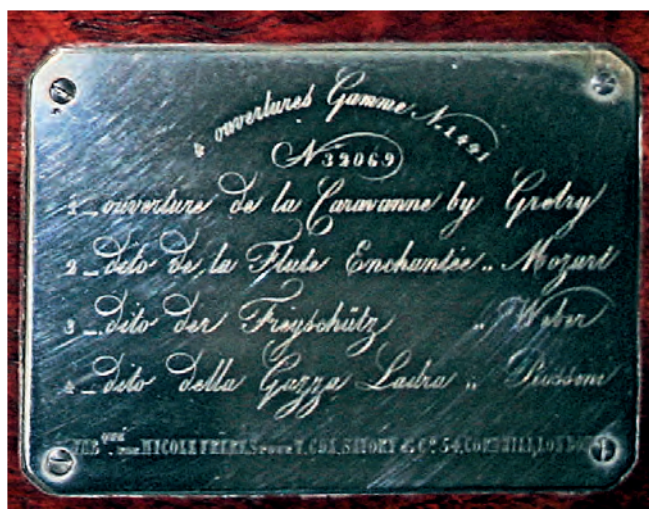 4 ouvertures Gamme N. 1441
N 39069
1_ ouverture de la Caravanne by Gretry
2_ dito de la Flute Enchantée „ Mozart
3_ dito der Freyschütz „ Weber
4_ dito della Gazza Ladra „ Rossini
FAB que PAR NICOLE FRERES, T. COX, SAVORY & Co. 54, CORNHILL, LONDON